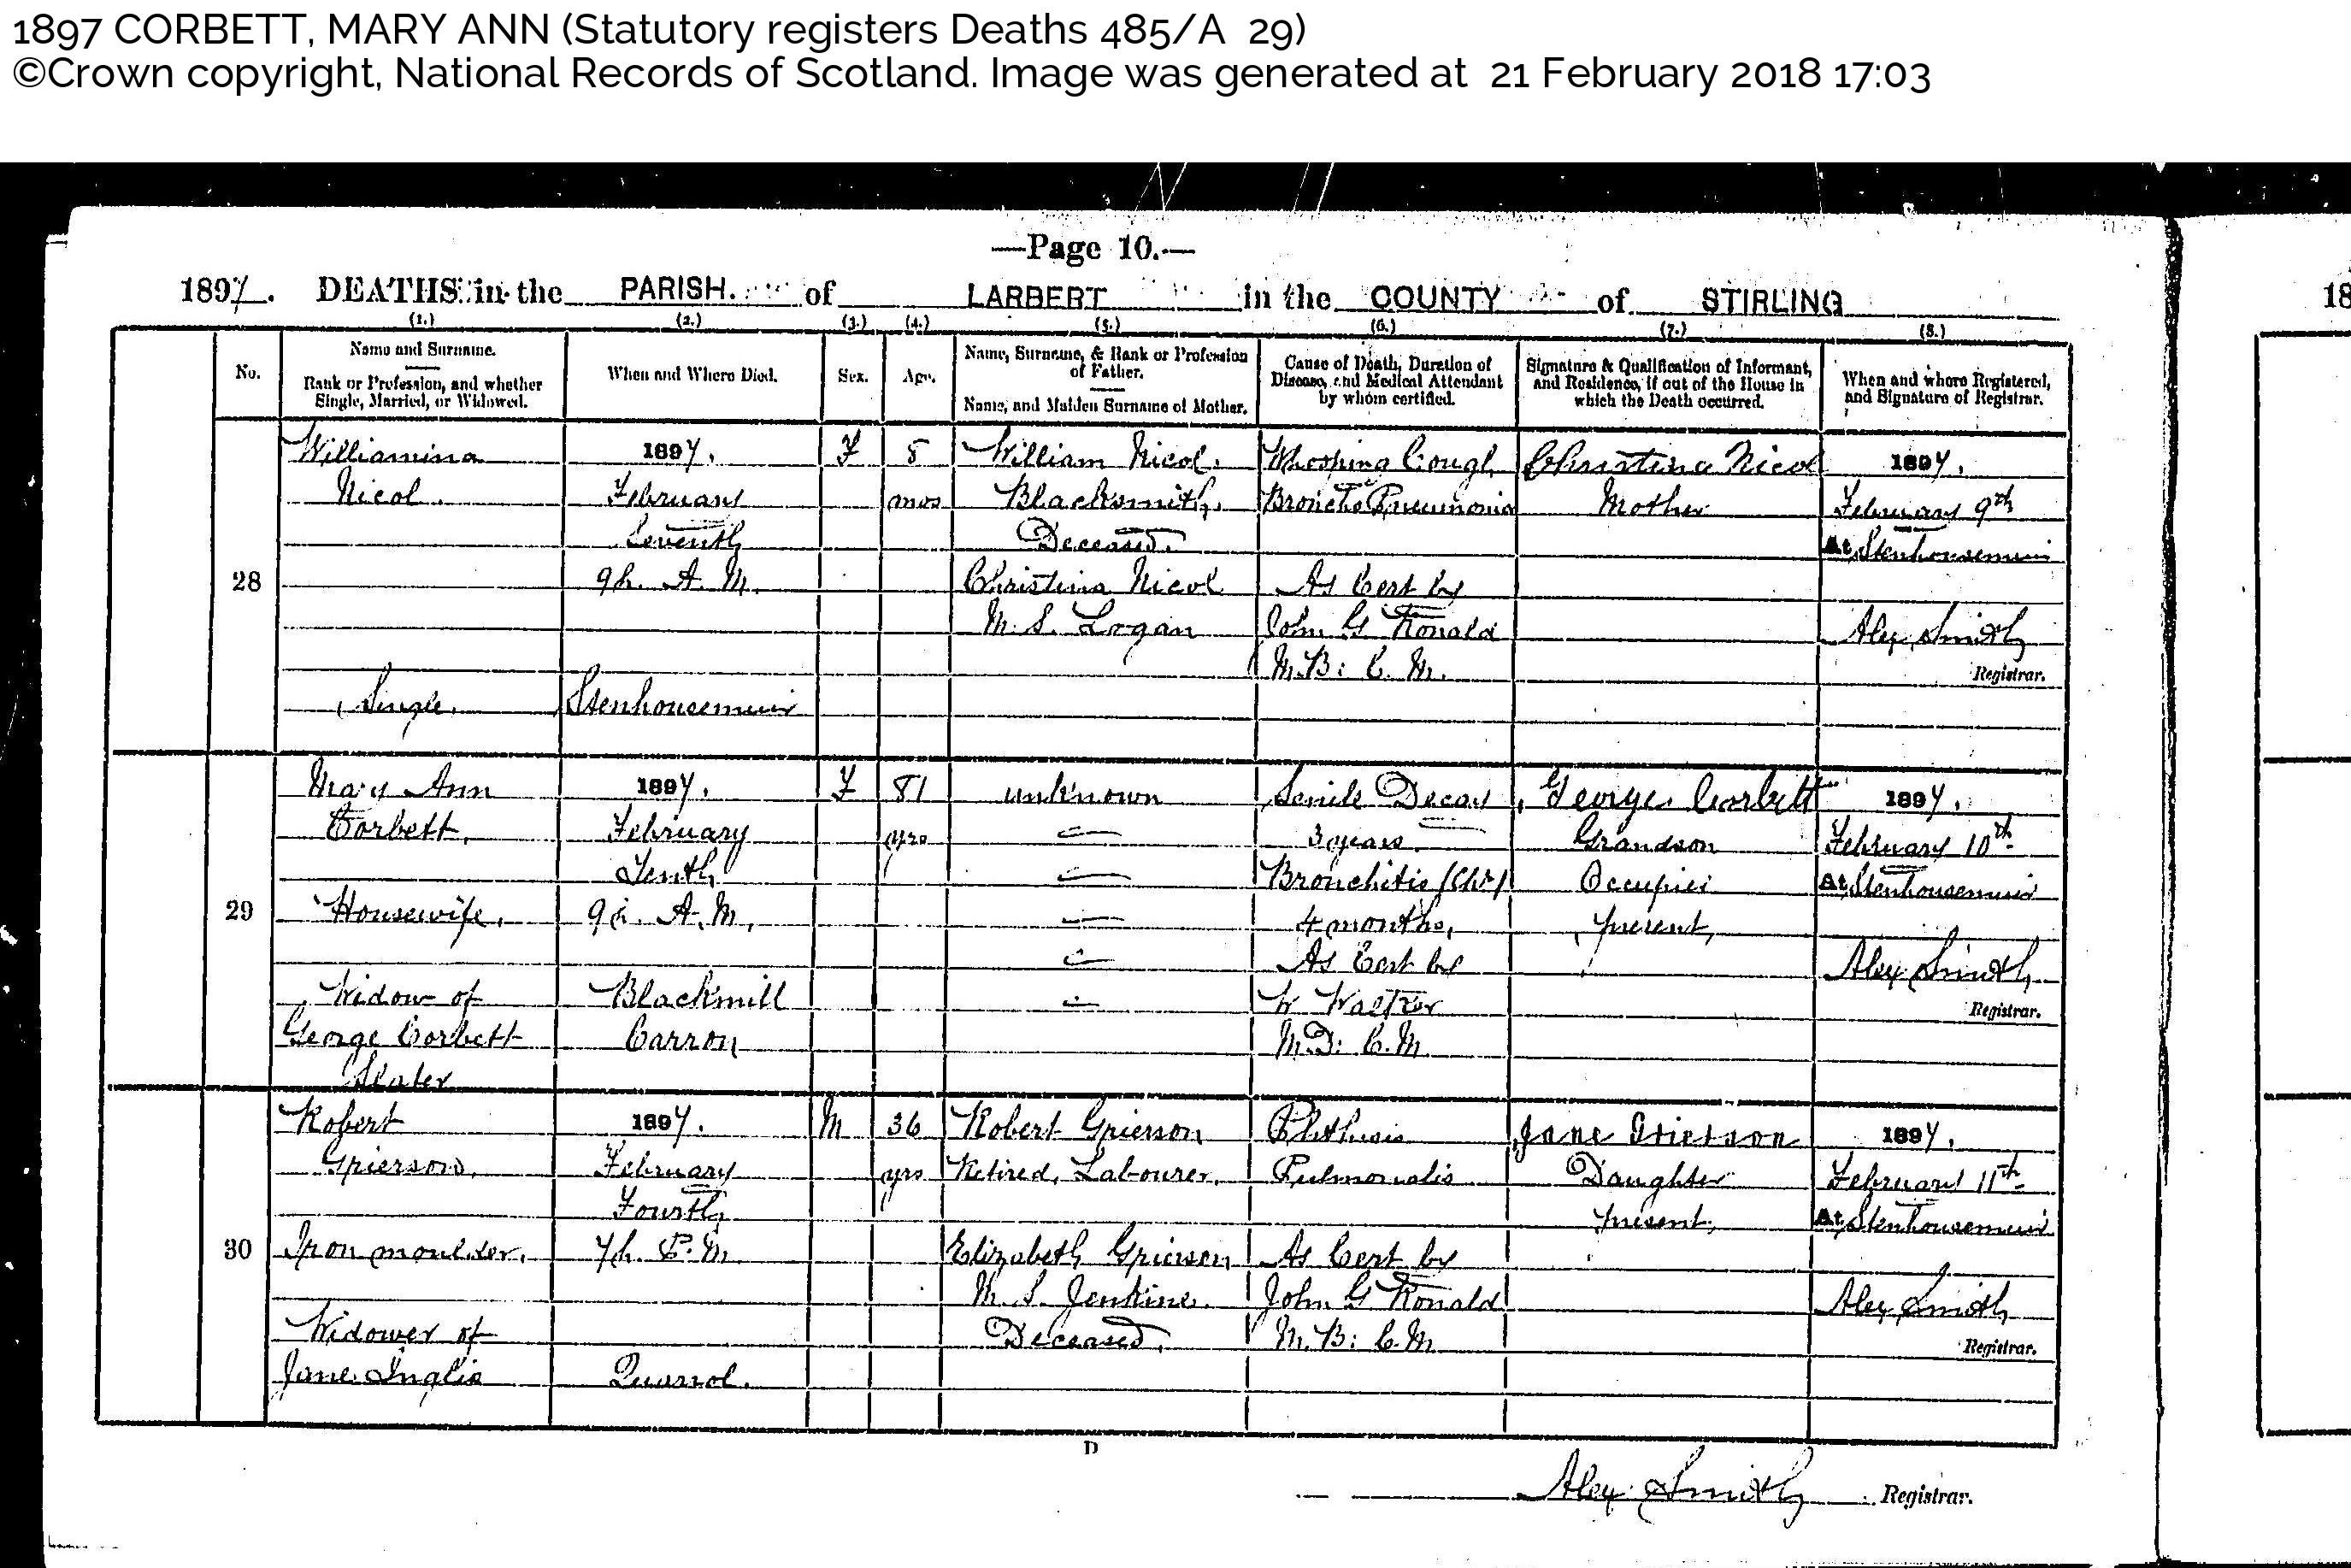 1897 CORBETT, MARY ANN (Statutory registers Deaths 485/A 29)
©Crown copyright, National Records of Scotland. Image was generated at 21 February 2018 17:03
—Page 10.—
1897. DEATHS in the PARISH. of LARBERT in the COUNTY of STIRLING
18
(1.) (2.) (3.) (4.) (5.) (6.) (7.) (8.)
No.
Name and Surname.
Rank or Profession, and whether
Single, Married, or Widowed.
When and Where Died.
Sex.
Age.
Name, Surname, & Rank or Profession
of Father.
Name, and Maiden Surname of Mother.
Cause of Death, Duration of
Disease, and Medical Attendant
by whom certified.
Signature & Qualification of Informant,
and Residence, if out of the House in
which the Death occurred.
When and where Registered,
and Signature of Registrar.
28
Williamina
Nicol.
Single.
1897.
February
Seventh
9h. A. M.
Stenhousemuir
F
8
mos
William Nicol.
Blacksmith.
Deceased.
Christina Nicol
M. S. Logan
Whooping Cough
Broncho Pneumonia
As Cert by
John G Ronald
M.B: C. M.
Christina Nicol
Mother
1897.
February 9th
At Stenhousemuir
Alex. Smith
Registrar.
29
Mary Ann
Corbett.
Housewife.
Widow of
George Corbett
Slater
1897.
February
Tenth
9h. A. M.
Blackmill
Carron
F
81
yrs
unknown
—
—
—
—
—
Senile Decay
3 years.
Bronchitis (Chr)
4 months.
As Cert by
M.D: C.M.
George Corbett
Grandson
Occupier
present,
1897.
February 10th
At Stenhousemuir
Alex Smith
Registrar.
30
Robert
Grierson.
Iron moulder.
Widower of
Jane Inglis
1897.
February
Fourth
7h. P. M.
Quarrol.
M
36
yrs
Robert Grierson
Retired, Labourer.
Elizabeth Grierson
M. S. Jenkins.
Deceased.
Phthisis
Pulmonalis
As Cert by
John G Ronald
M. B: C. M
Jane Grierson
Daughter
present,
1897.
February 11th
At Stenhousemuir
Alex Smith
Registrar.
D
Alex. Smith Registrar.